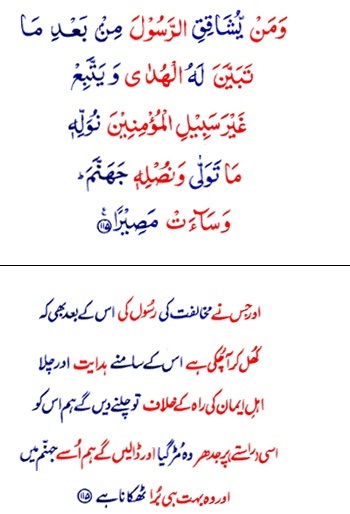 وَمَنْ يُّشَاقِقِ الرَّسُوْلَ مِنْۢ بَعْدِ مَا
تَبَيَّنَ لَهُ الْهُدٰى وَ يَتَّبِعْ
غَيْرَ سَبِيْلِ الْمُؤْمِنِيْنَ نُوَلِّهٖ
مَا تَوَلّٰى وَنُصْلِهٖ جَهَنَّمَ ؕ
وَسَآءَتْ مَصِيْرًا ۝۱۱۵
اور جس نے مخالفت کی رسُول کی اس کے بعد بھی کہ
کُھل کر آ چُکی ہے اس کے سامنے ہدایت اور چلا
اہلِ ایمان کی راہ کے خلاف تو چلنے دیں گے ہم اس کو
اسی راستے پر جدھر وہ مُڑ گیا اور ڈالیں گے ہم اُسے جہنّم میں
اور وہ بہت ہی بُرا ٹھکانا ہے ۝۱۱۵